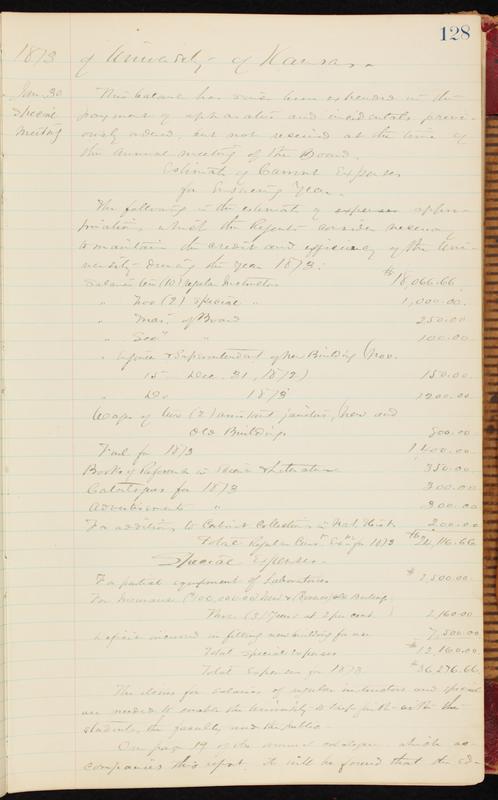 128
1873 of University of Kansas
Jan 30 This balance has since been expended in the
Special payment of apparatus and incidentals previ-
Meeting ously ordered, but not received at the time of
the annual meeting of the Board.
Estimate of Current Expenses
for Ensuing Year.
The following is the estimate of expenses appro-
priations which the Regents consider necessary
to maintain the credit and efficiency of the Uni-
versity during the year 1873.
Salaries ten (10) regular Instructors $18,066.66
" two (2) special " 1,000.00
" Treas. of Board 250.00
" Secy " 100.00
" Superintendent of new Building (Nov.
15 Dec. 31, 1872) 150.00
" Do 1873 1200.00
Wages of two (2) assistant janitors, New and
Old Buildings 800.00
Fuel for 1873 1400.00
Books of Reference in Science & Literature 350.00
Catalogues for 1873 300.00
Advertisements " 300.00
For additions to Cabinet Collections in Nat. Hist. 200.00
Total Regular Curt Exps for 1873 $24,116.66
Special Expenses.
For partial equipment of Laboratories $2,500.00
For Insurance $100,000.00 New & Old Building
Three (3) Years at 2 per cent 2,160.00
Deficit incurred in fitting new building for use 7,500.00
Total Special Expenses $12,160.00
Total Expenses for 1873 $36,276.66
The items for salaries of regular instructors and special
are needed to enable the University to keep faith with the
students, the faculty and the public.
On page 19 of the annual catalogue which ac-
companies this report, it will be found that the ed-